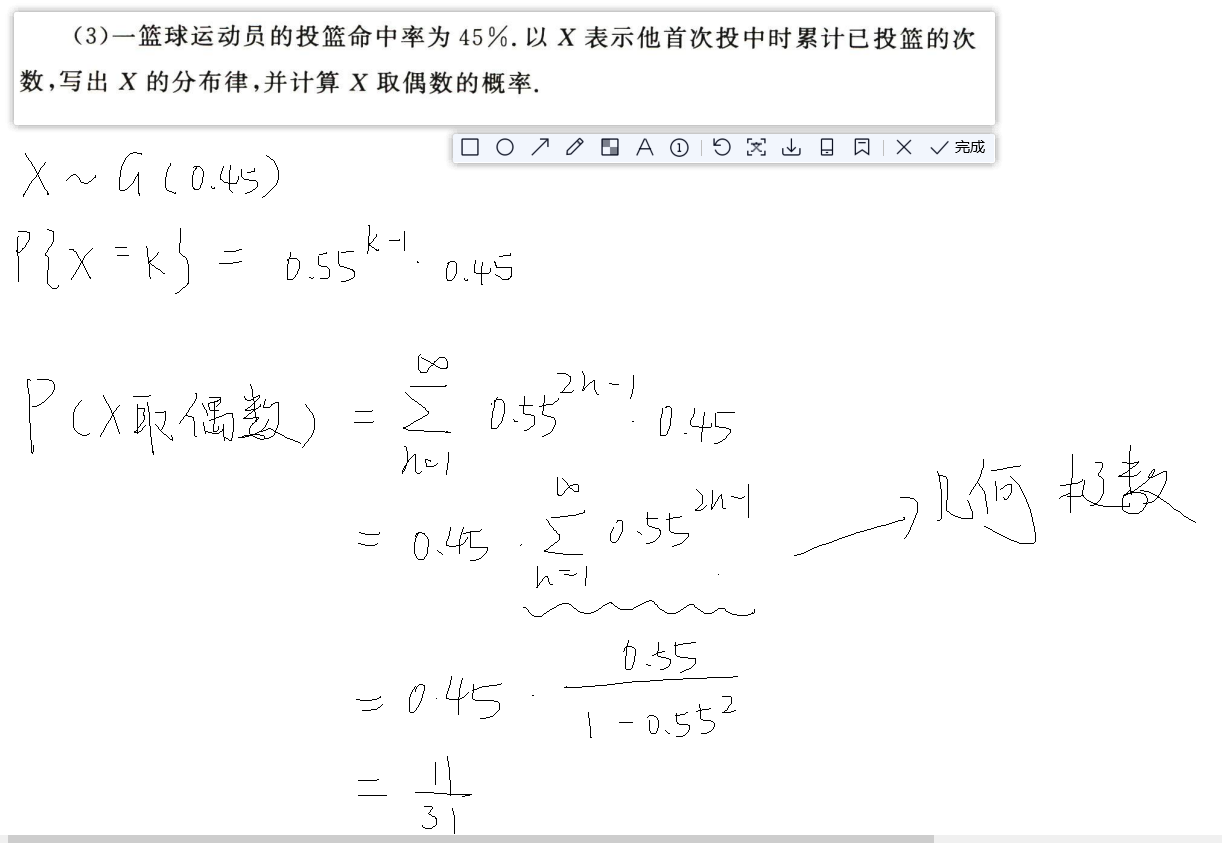 (3)一篮球运动员的投篮命中率为45%.以X表示他首次投中时累计已投篮的次
数,写出X的分布律,并计算X取偶数的概率.
A ① 完成
X ~ G(0.45)
P{X=k} = 0.55^{k-1} · 0.45
P(X取偶数) = \sum_{n=1}^{∞} 0.55^{2n-1} · 0.45
= 0.45 · \sum_{n=1}^{∞} 0.55^{2n-1} → 几何级数
= 0.45 · \frac{0.55}{1-0.55^2}
= \frac{11}{31}